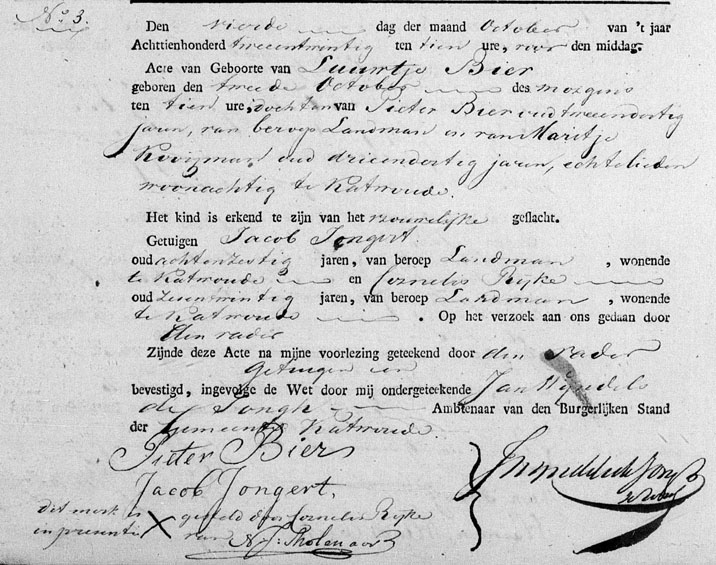 N.o 3.
Den vierde dag der maand October van 't jaar
Achttienhonderd tweeentwintig ten tien ure, voor den middag.
Acte van Geboorte van Luurtje Bier
geboren den tweede October des morgens
ten tien ure, dochter van Pieter Bier oud tweeendertig
jaren, van beroep Landman en van Maritje
Kooijman, oud drieendertig jaren, echtelieden
woonachtig te Katwoude.
Het kind is erkend te zijn van het vrouwelijke geslacht.
Getuigen Jacob Jongert.
oud achtenzestig jaren, van beroep Landman, wonende
te Katwoude en Cornelis Rijke
oud zesentwintig jaren, van beroep Landman, wonende
te Katwoude. Op het verzoek aan ons gedaan door
den vader
Zijnde deze Acte na mijne voorlezing geteekend door den Vader
Getuigen en
bevestigd, ingevolge de Wet door mij ondergeteekende Jan
de Jongh Ambtenaar van den Burgerlijken Stand
der Gemeente Katwoude.
Pieter Bier
Jacob Jongert.
dit merk is X gesteld door Cornelis Rijke
in presentie van N. J. Tholenaar